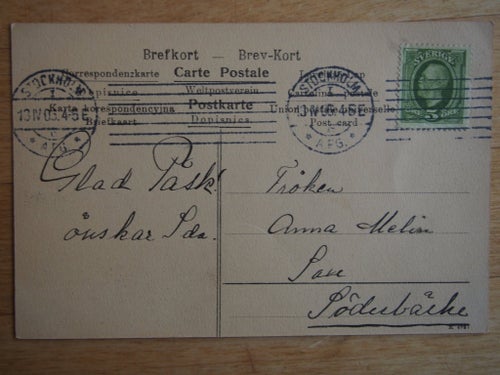 Brefkort — Brev-Kort
Correspondenzkarte Carte Postale
Dopisnice Weltpostverein
Karta korespondencyjna Postkarte Union postale universelle
Briefkaart Dopisnica Post card
STOCKHOLM
13 IV 06. 4-5 E
* AFG. *
STOCKHOLM
13 IV 06. 4-5 E
* AFG. *
SVERIGE
5
Glad Påsk!
önskar
Fröken
Anna Melin
Söderbärke